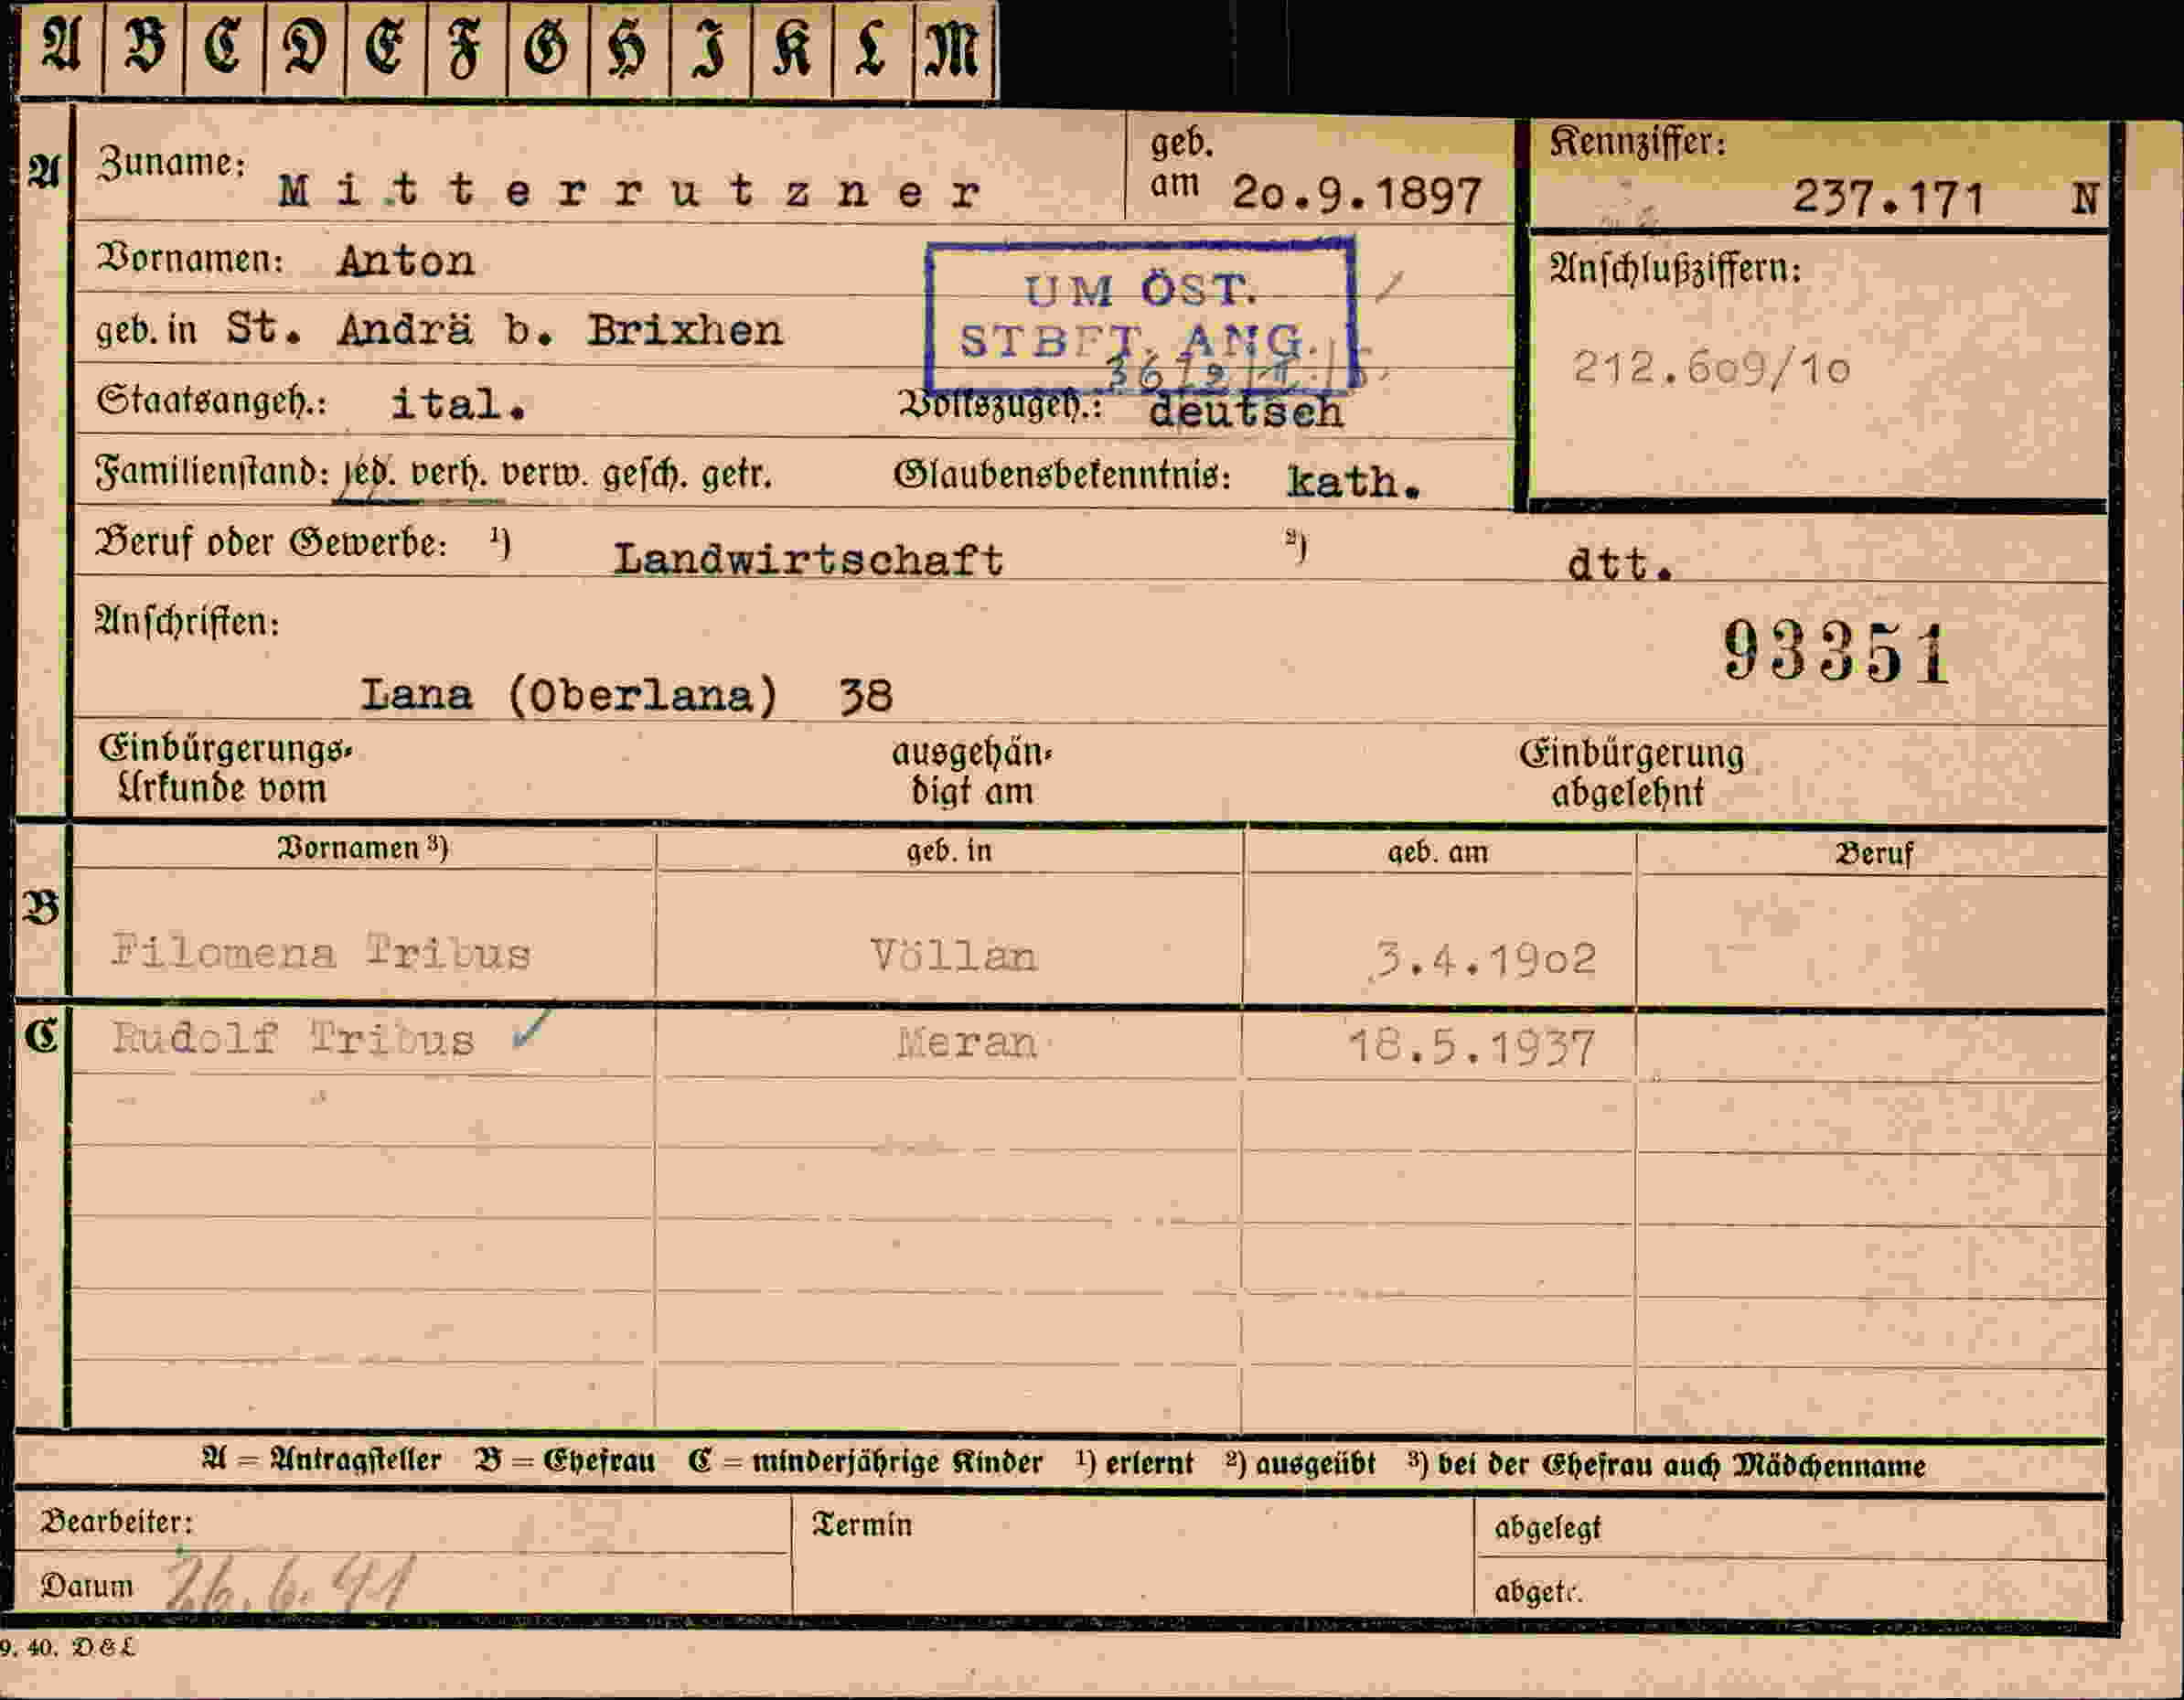 A B C D E F G H I K L M
A Zuname: Mitterrutzner geb. am 20.9.1897 Kennziffer: 237.171 N
Vornamen: Anton
UM ÖST. STBFT. ANG.
Anschlußziffern:
geb. in St. Andrä b. Brixhen
212.609/10
Staatsangeh.: ital. Volkszugeh.: deutsch
Familienstand: led. verh. verw. gesch. getr. Glaubensbekenntnis: kath.
Beruf oder Gewerbe: ¹) Landwirtschaft ²) dtt.
Anschriften:
93351
Lana (Oberlana) 38
Einbürgerungs- ausgehän- Einbürgerung
Urkunde vom digt am abgelehnt
Vornamen ³) geb. in geb. am Beruf
B
Filomena Tribus Völlan 3.4.1902
C Rudolf Tribus ✓ Meran 18.5.1937
A = Antragsteller B = Ehefrau C = minderjährige Kinder ¹) erlernt ²) ausgeübt ³) bei der Ehefrau auch Mädchenname
Bearbeiter: Termin abgelegt
Datum 26.6.41 abgetr.
9. 40. D & L